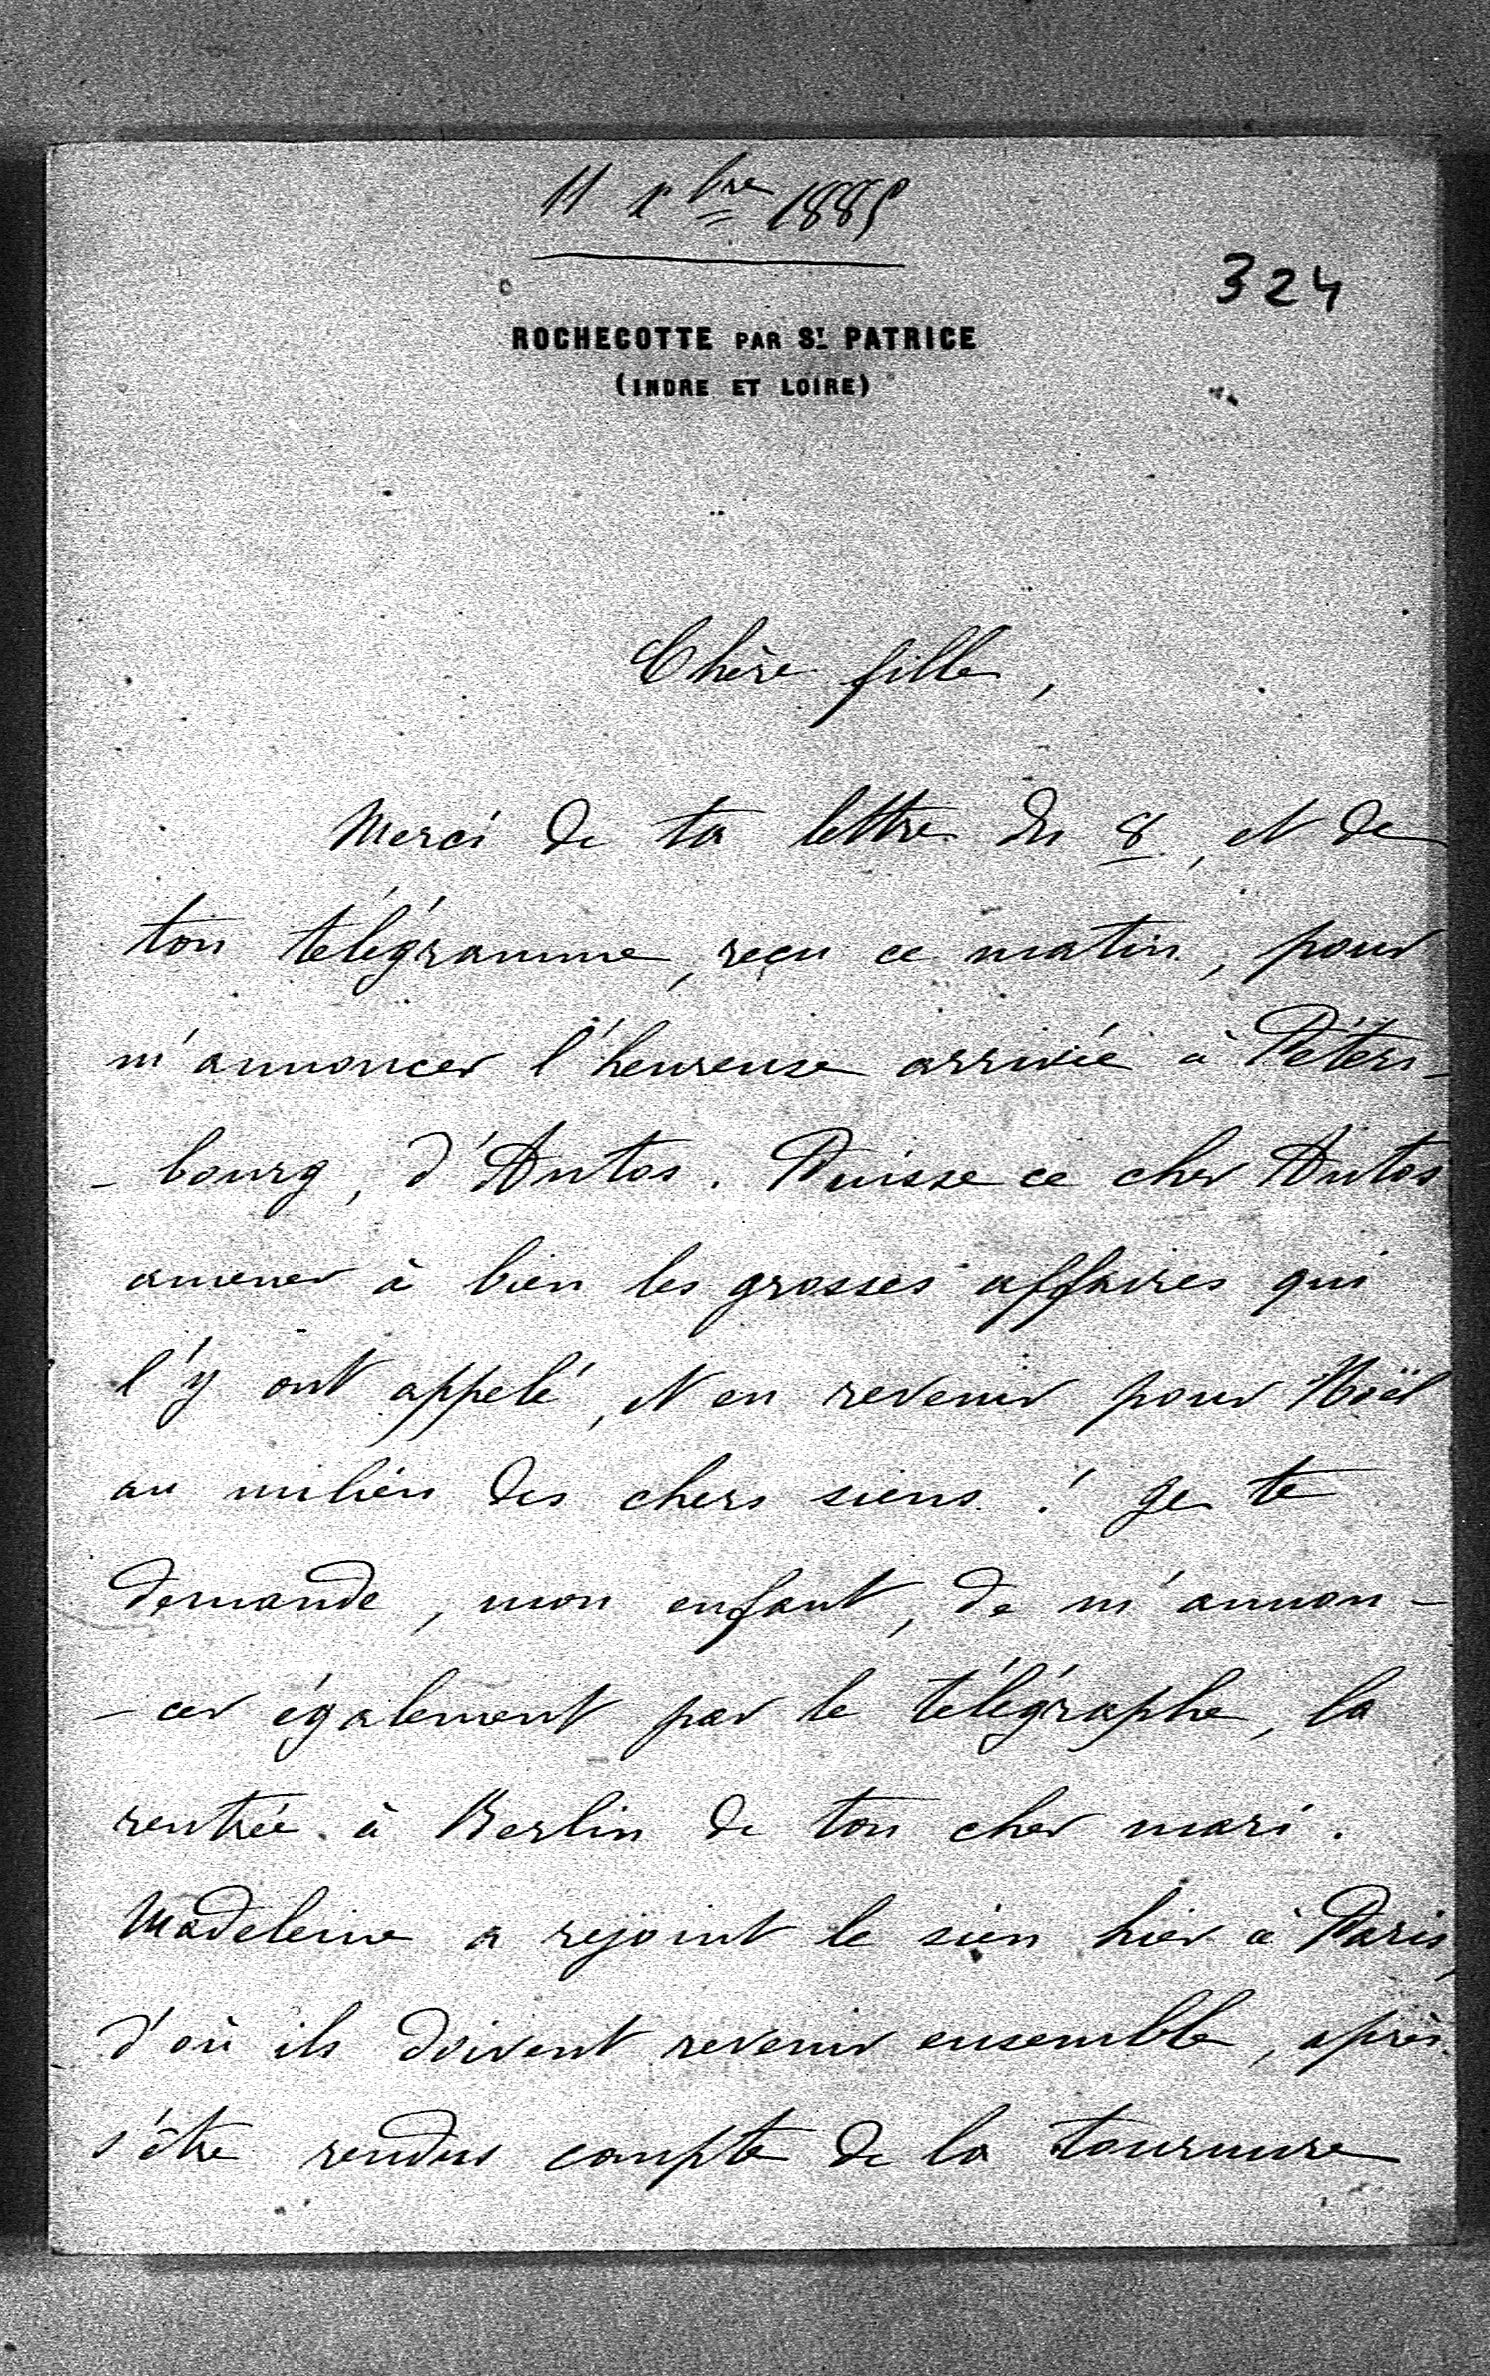 11 xbre 1885
324
ROCHECOTTE PAR ST PATRICE
(INDRE ET LOIRE)
Chère fille,
Merci de ta lettre du 8, et de
ton télégramme, reçu ce matin, pour
m'annoncer l'heureuse arrivée à Péters-
-bourg, d'Antos. Puisse ce cher Antos
amener à bien les grosses affaires qui
l'y ont appelé, et en revenir pour Noël
au milieu des chers siens ! Je te
demande, mon enfant, de m'annon-
-cer également par le télégraphe, la
rentrée à Berlin de ton cher mari.
Madeleine a rejoint le sien hier à Paris,
d'où ils doivent revenir ensemble, après
s'être rendus compte de la tournure